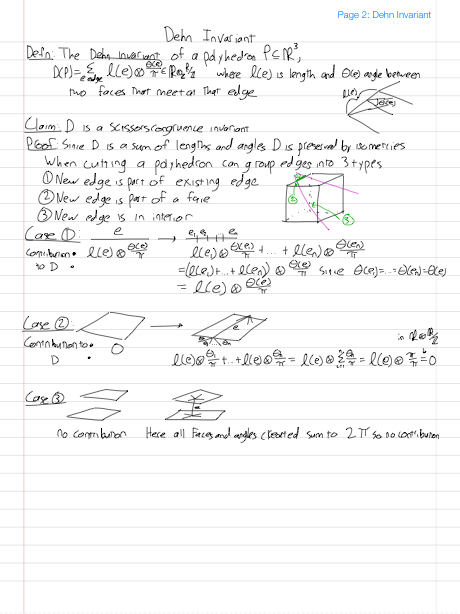 Page 2: Dehn Invariant
Dehn Invariant
Defn: The Dehn invariant of a polyhedron P⊆ℝ³,
D(P)=∑_{e edge} l(e)⊗θ(e)/π ∈ ℝ⊗_ℤ ℝ/ℤ where l(e) is length and θ(e) angle between
two faces that meet at that edge
l(e)
θ(e)
Claim: D is a scissors congruence invariant
Proof: Since D is a sum of lengths and angles D is preserved by isometries
When cutting a polyhedron can group edges into 3 types
① New edge is part of existing edge
② New edge is part of a face
③ New edge is in interior
① ② ③
Case ①: e → e₁ e₂ eₙ
Contribution • l(e)⊗θ(e)/π l(e₁)⊗θ(e₁)/π +...+ l(eₙ)⊗θ(eₙ)/π
to D • =(l(e₁)+...+l(eₙ))⊗θ(e)/π Since θ(e₁)=...=θ(eₙ)=θ(e)
= l(e)⊗θ(e)/π
Case ②: → e
in ℝ⊗ℝ/ℤ
Contribution to • 0
D • l(e)⊗θ₁/π+...+l(e)⊗θₙ/π = l(e)⊗∑θᵢ/π = l(e)⊗π/π = 0
Case ③ e
no contribution Here all faces and angles created sum to 2π so no contribution